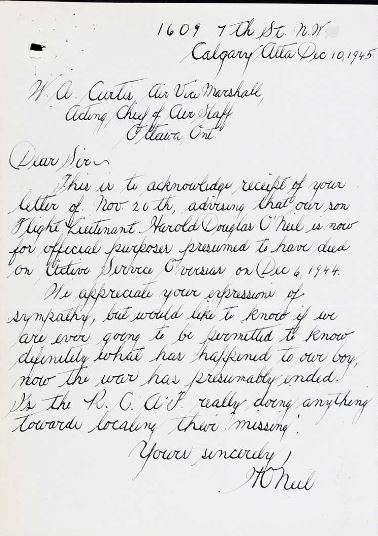 1609 7th St. N.W.
Calgary Alta Dec 10, 1945.
W. A. Curtis, Air Vice Marshall,
Acting Chief of Air Staff
Ottawa Ont
Dear Sir
This is to acknowledge receipt of your
letter of Nov 26th, advising that our son
Flight Lieutenant Harold Douglas O'Neil is now
for official purposes presumed to have died
on Active Service Overseas on Dec 6, 1944.
We appreciate your expressions of
sympathy, but would like to know if we
are ever going to be permitted to know
definitely what has happened to our boy,
now the war has presumably ended.
Is the R. C. A. F. really doing anything
towards locating their "missing".
Yours sincerely,
O'Neil